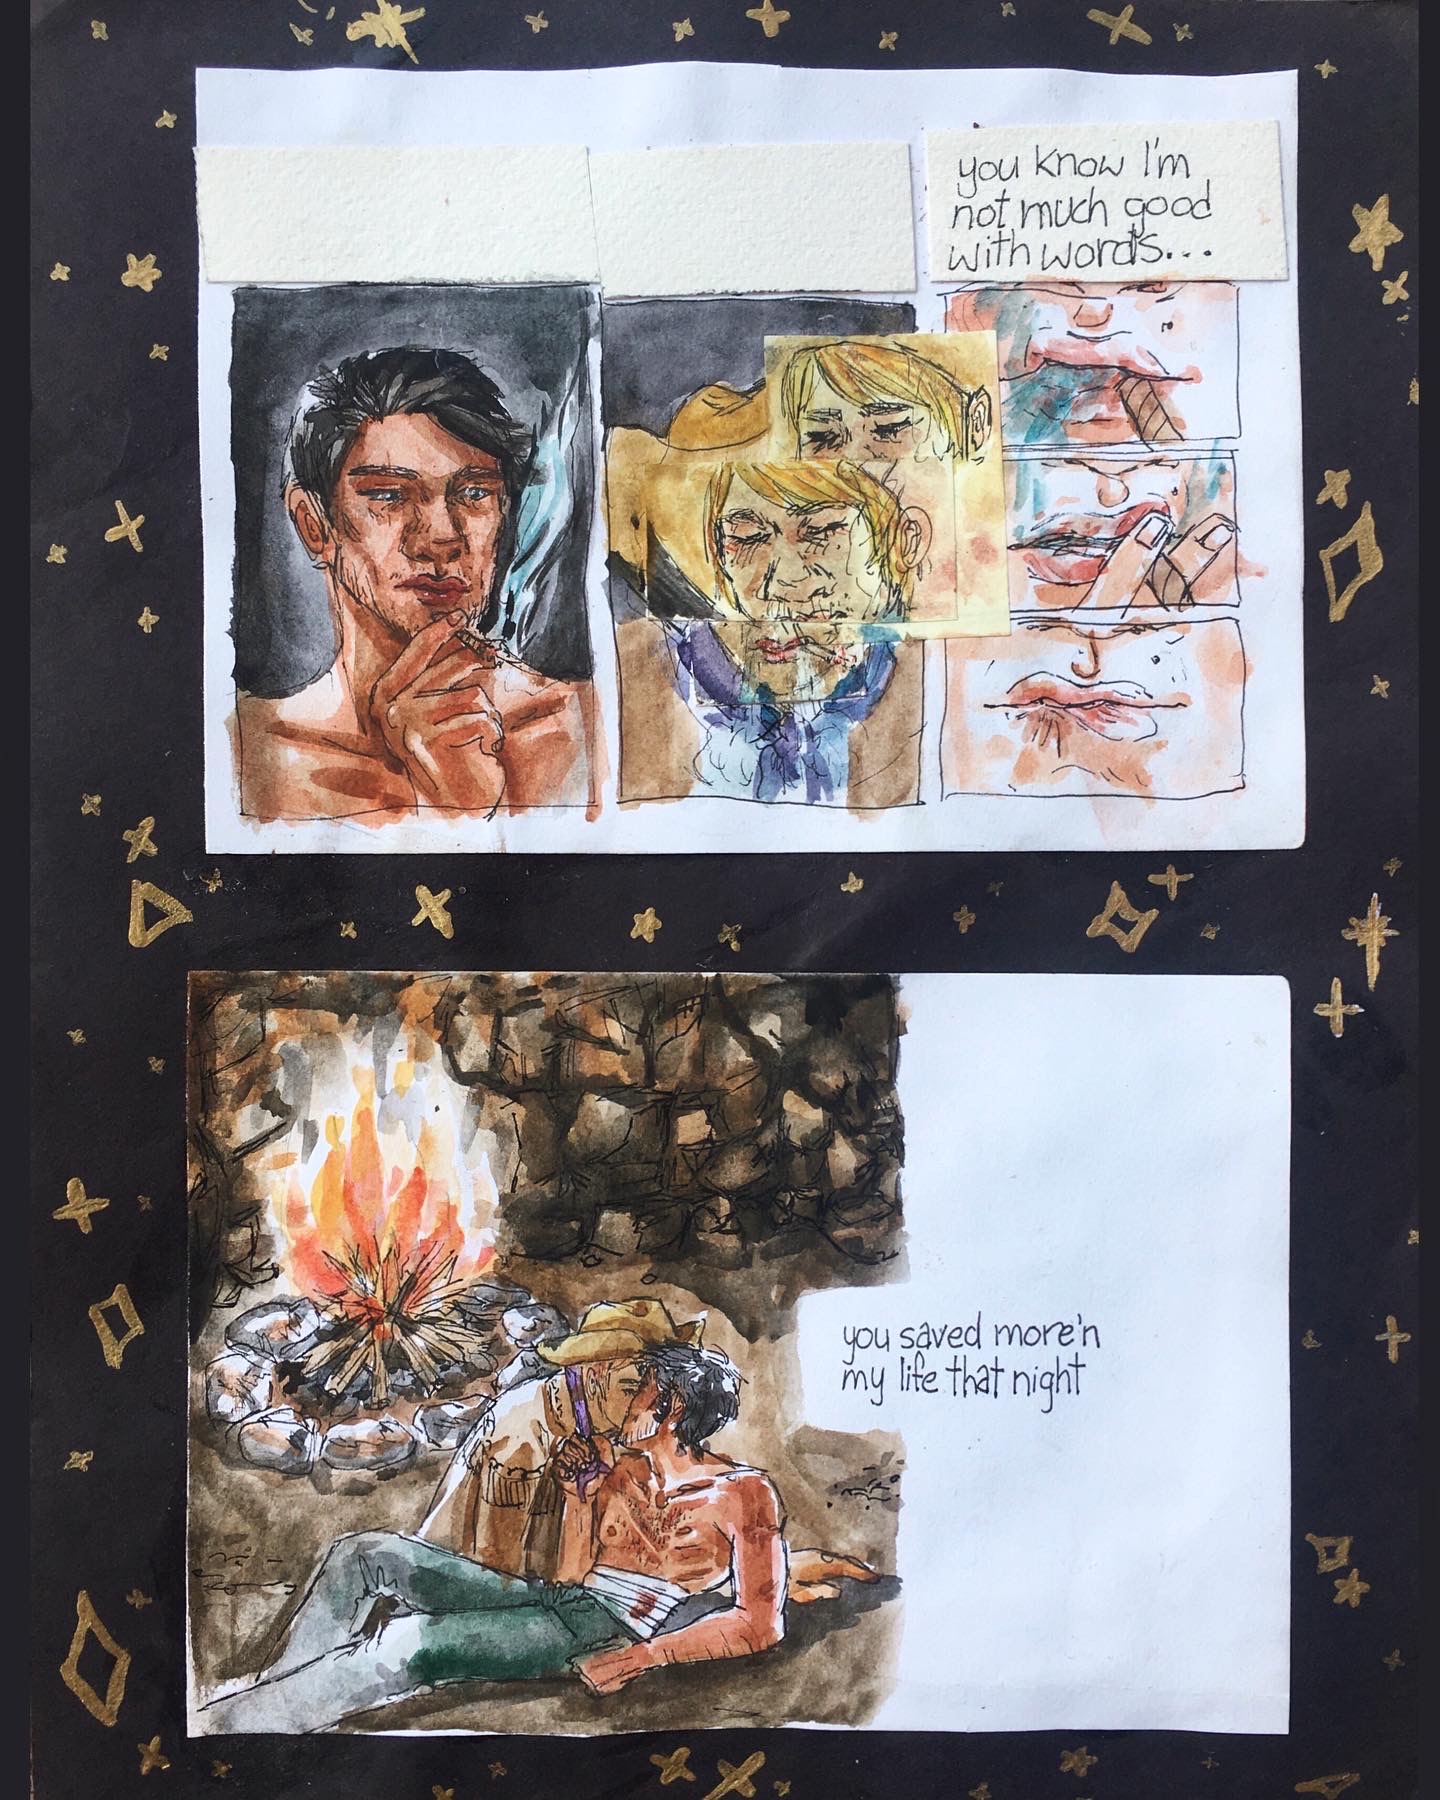 you know I'm
not much good
with words...
you saved more'n
my life that night